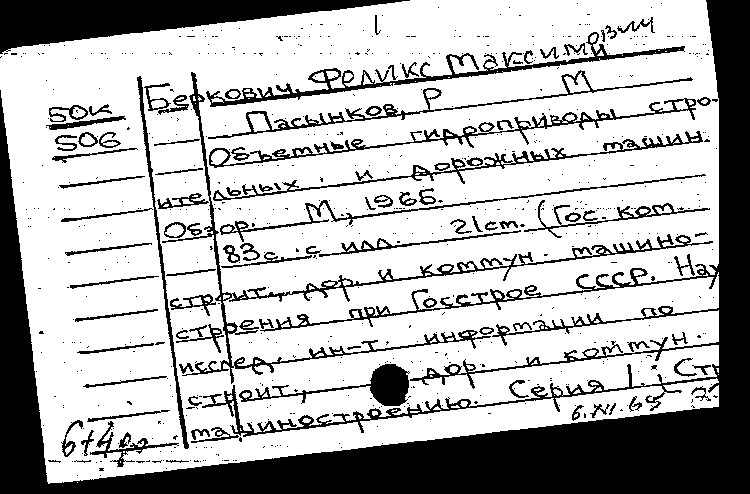 1
Беркович, Феликс Максимович
Б0К
Пасынков, Р М
S06
Объемные гидроприводы стро-
ительных и дорожных машин.
Обзор. М., 1965.
83с. с илл. 21см. (Гос. ком.
строит., дор. и коммун. машино-
строения при Госстрое СССР. Нау
исслед. ин-т информации по
строит., дор. и коммун.
машиностроению. Серия 1.; Стр
6.XII.65